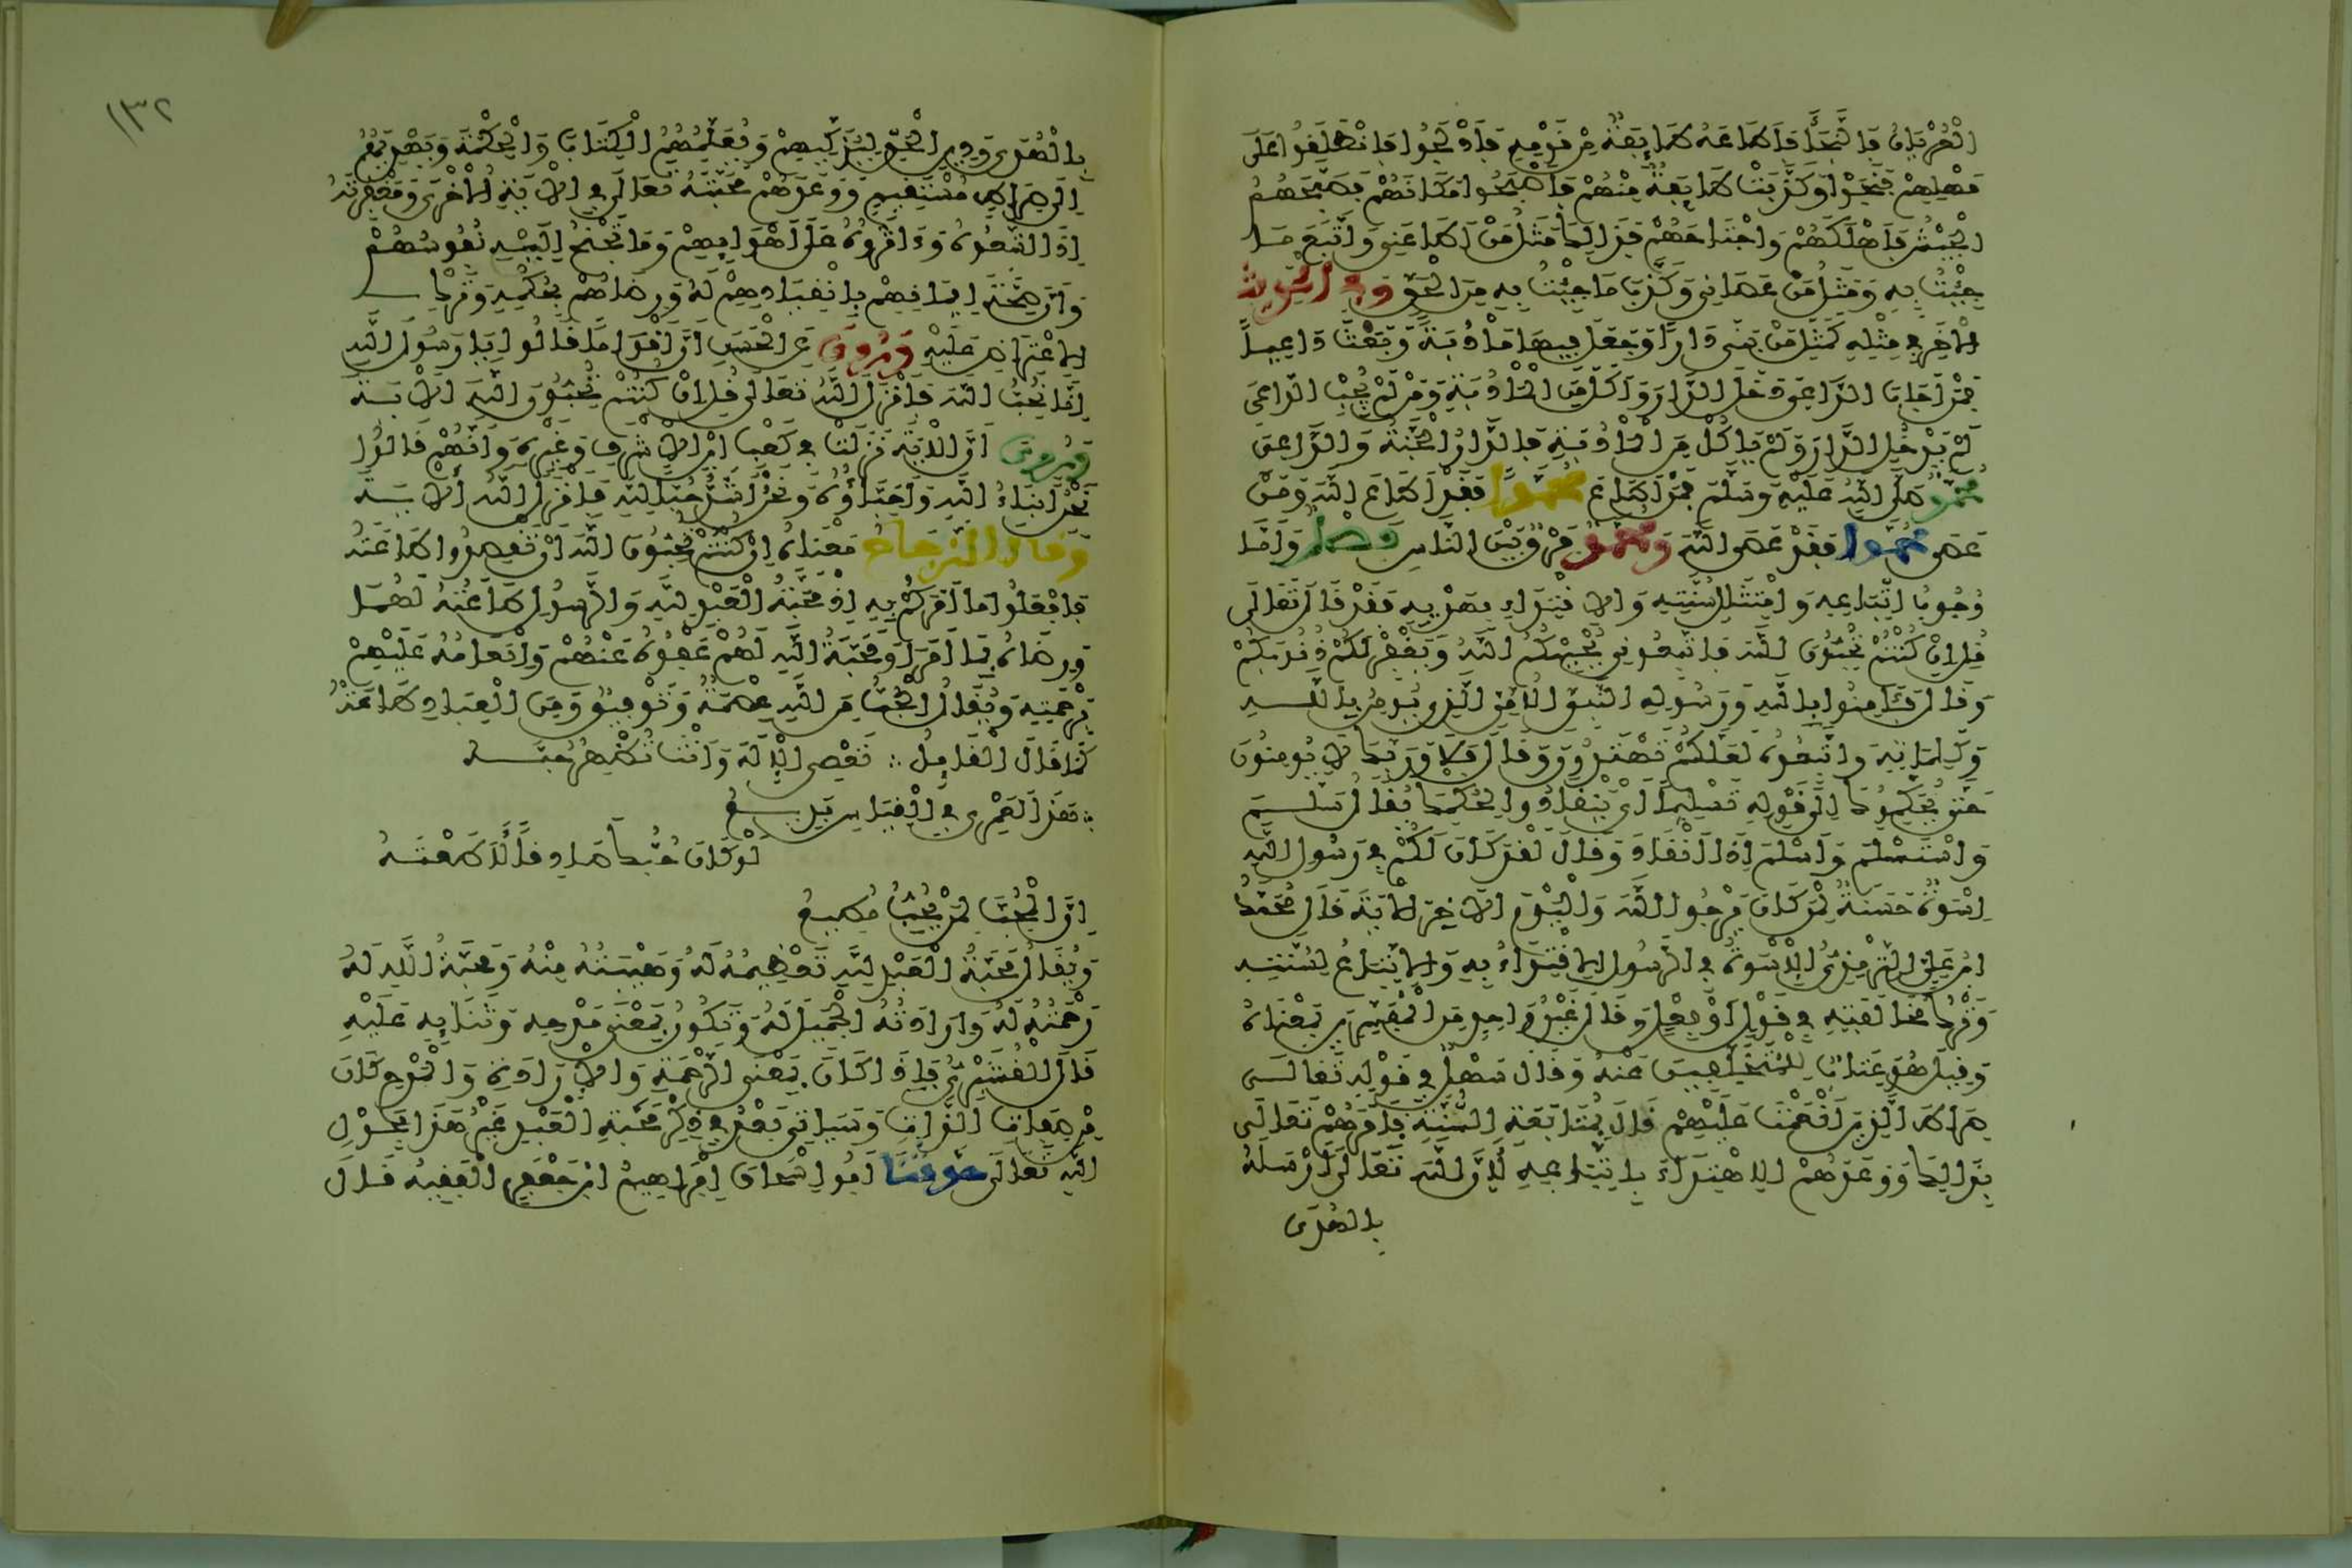 الْعُرْيَانُ فَالنَّجَاءَ فَأَطَاعَهُ طَائِفَةٌ مِنْ قَوْمِهِ فَأَدْلَجُوا فَانْطَلَقُوا عَلَى
مَهْلِهِمْ فَنَجَوْا وَكَذَّبَتْ طَائِفَةٌ مِنْهُمْ فَأَصْبَحُوا مَكَانَهُمْ فَصَبَّحَهُمُ
الْجَيْشُ فَأَهْلَكَهُمْ وَاجْتَاحَهُمْ فَذَلِكَ مَثَلُ مَنْ أَطَاعَنِي وَاتَّبَعَ مَا
جِئْتُ بِهِ وَمَثَلُ مَنْ عَصَانِي وَكَذَّبَ مَا جِئْتُ بِهِ مِنَ الْحَقِّ وفي الحديث
الآخَرِ فِي مِثْلِهِ كَمَثَلِ مَنْ بَنَى دَارًا وَجَعَلَ فِيهَا مَأْدُبَةً وَبَعَثَ دَاعِيًا
فَمَنْ أَجَابَ الدَّاعِيَ دَخَلَ الدَّارَ وَأَكَلَ مِنَ الْمَأْدُبَةِ وَمَنْ لَمْ يُجِبِ الدَّاعِيَ
لَمْ يَدْخُلِ الدَّارَ وَلَمْ يَأْكُلْ مِنَ الْمَأْدُبَةِ فَالدَّارُ الْجَنَّةُ وَالدَّاعِي
مُحَمَّدٌ صَلَّى اللَّهُ عَلَيْهِ وَسَلَّمَ فَمَنْ أَطَاعَ مُحَمَّدًا فَقَدْ أَطَاعَ اللَّهَ وَمَنْ
عَصَى مُحَمَّدًا فَقَدْ عَصَى اللَّهَ وَمُحَمَّدٌ فَرْقٌ بَيْنَ النَّاسِ فَصْلٌ وَأَمَّا
وُجُوبُ اتِّبَاعِهِ وَامْتِثَالِ سُنَّتِهِ وَالاِقْتِدَاءِ بِهَدْيِهِ فَقَدْ قَالَ تَعَالَى
قُلْ إِنْ كُنْتُمْ تُحِبُّونَ اللَّهَ فَاتَّبِعُونِي يُحْبِبْكُمُ اللَّهُ وَيَغْفِرْ لَكُمْ ذُنُوبَكُمْ
وَقَالَ فَآمِنُوا بِاللَّهِ وَرَسُولِهِ النَّبِيِّ الأُمِّيِّ الَّذِي يُؤْمِنُ بِاللَّهِ
وَكَلِمَاتِهِ وَاتَّبِعُوهُ لَعَلَّكُمْ تَهْتَدُونَ وَقَالَ فَلَا وَرَبِّكَ لَا يُؤْمِنُونَ
حَتَّى يُحَكِّمُوكَ إِلَى قَوْلِهِ تَسْلِيمًا أَيْ يَنْقَادُوا لِحُكْمِكَ يُقَالُ سَلَّمَ
وَاسْتَسْلَمَ وَأَسْلَمَ إِذَا انْقَادَ وَقَالَ لَقَدْ كَانَ لَكُمْ فِي رَسُولِ اللَّهِ
إِسْوَةٌ حَسَنَةٌ لِمَنْ كَانَ يَرْجُو اللَّهَ وَالْيَوْمَ الآخِرَ الآيَةَ قَالَ مُحَمَّدُ
ابْنُ عَلِيٍّ التِّرْمِذِيُّ الإِسْوَةُ فِي الرَّسُولِ الاِقْتِدَاءُ بِهِ وَالاِتِّبَاعُ لِسُنَّتِهِ
وَتَرْكُ مُخَالَفَتِهِ فِي قَوْلٍ أَوْ فِعْلٍ وَقَالَ غَيْرُ وَاحِدٍ مِنَ الْمُفَسِّرِينَ بِمَعْنَاهُ
وَقِيلَ هُوَ عِتَابٌ لِلْمُتَخَلِّفِينَ عَنْهُ وَقَالَ سَهْلٌ فِي قَوْلِهِ تَعَالَى
صِرَاطَ الَّذِينَ أَنْعَمْتَ عَلَيْهِمْ قَالَ بِمُتَابَعَةِ السُّنَّةِ فَأَمَرَهُمْ تَعَالَى
بِذَلِكَ وَوَعَدَهُمْ الاِهْتِدَاءَ بِاتِّبَاعِهِ لِأَنَّ اللَّهَ تَعَالَى أَرْسَلَهُ
بالهدى
١٣٢
بِالْهُدَى وَدِينِ الْحَقِّ لِيُزَكِّيَهُمْ وَيُعَلِّمَهُمُ الْكِتَابَ وَالْحِكْمَةَ وَيَهْدِيَهُمْ
إِلَى صِرَاطٍ مُسْتَقِيمٍ وَوَعَدَهُمْ مَحَبَّتَهُ تَعَالَى فِي الآيَةِ الأُخْرَى وَمَغْفِرَتَهُ
إِذَا اتَّبَعُوهُ وَءَاثَرُوهُ عَلَى أَهْوَائِهِمْ وَمَا تَجْنَحُ إِلَيْهِ نُفُوسُهُمْ
وَأَنَّ صِحَّةَ إِيمَانِهِمْ بِانْقِيَادِهِمْ لَهُ وَرِضَاهُمْ بِحُكْمِهِ وَتَرْكِ
الاِعْتِرَاضِ عَلَيْهِ وَرُوِيَ عَنِ الْحَسَنِ أَنَّ أَقْوَامًا قَالُوا يَا رَسُولَ اللَّهِ
إِنَّا نُحِبُّ اللَّهَ فَأَنْزَلَ اللَّهُ تَعَالَى قُلْ إِنْ كُنْتُمْ تُحِبُّونَ اللَّهَ الآيَةَ
وَرُوِيَ أَنَّ الآيَةَ نَزَلَتْ فِي كَعْبِ ابْنِ الأَشْرَفِ وَغَيْرِهِ وَأَنَّهُمْ قَالُوا
نَحْنُ أَبْنَاءُ اللَّهِ وَأَحِبَّاؤُهُ وَنَحْنُ أَشَدُّ حُبًّا لِلَّهِ فَأَنْزَلَ اللَّهُ الآيَةَ
وقال الزجاج مَعْنَاهُ إِنْ كُنْتُمْ تُحِبُّونَ اللَّهَ أَنْ تَقْصِدُوا طَاعَتَهُ
فَافْعَلُوا مَا أَمَرَكُمْ بِهِ إِذْ مَحَبَّةُ الْعَبْدِ لِلَّهِ وَالرَّسُولِ طَاعَتُهُ لَهُمَا
وَرِضَاهُ بِمَا أَمَرَا وَمَحَبَّةُ اللَّهِ لَهُمْ عَفْوُهُ عَنْهُمْ وَإِنْعَامُهُ عَلَيْهِمْ
بِرَحْمَتِهِ وَيُقَالُ الْحُبُّ مِنَ اللَّهِ عِصْمَةٌ وَتَوْفِيقٌ وَمِنَ الْعِبَادِ طَاعَةٌ
كَمَا قَالَ الْقَائِلُ ∴ تَعْصِي الإِلَهَ وَأَنْتَ تُظْهِرُ حُبَّهُ
∴ هَذَا لَعَمْرِي فِي الْقِيَاسِ بَدِيعُ
لَوْ كَانَ حُبُّكَ صَادِقًا لَأَطَعْتَهُ
إِنَّ الْمُحِبَّ لِمَنْ يُحِبُّ مُطِيعُ
وَيُقَالُ مَحَبَّةُ الْعَبْدِ لِلَّهِ تَعْظِيمُهُ لَهُ وَهَيْبَتُهُ مِنْهُ وَمَحَبَّةُ اللَّهِ لَهُ
رَحْمَتُهُ لَهُ وَإِرَادَتُهُ الْجَمِيلَ لَهُ وَتَكُونُ بِمَعْنَى مَدْحِهِ وَثَنَائِهِ عَلَيْهِ
قَالَ الْقُشَيْرِيُّ فَإِذَا كَانَ بِمَعْنَى الرَّحْمَةِ وَالإِرَادَةِ وَالْمَدْحِ كَانَ
مِنْ صِفَاتِ الذَّاتِ وَسَيَأْتِي بَعْدُ فِي ذِكْرِ مَحَبَّةِ الْعَبْدِ غَيْرُ هَذَا بِحَوْلِ
اللَّهِ تَعَالَى حَدَّثَنَا أَبُو إِسْحَاقَ إِبْرَاهِيمُ ابْنُ جَعْفَرٍ الْفَقِيهُ قَالَ